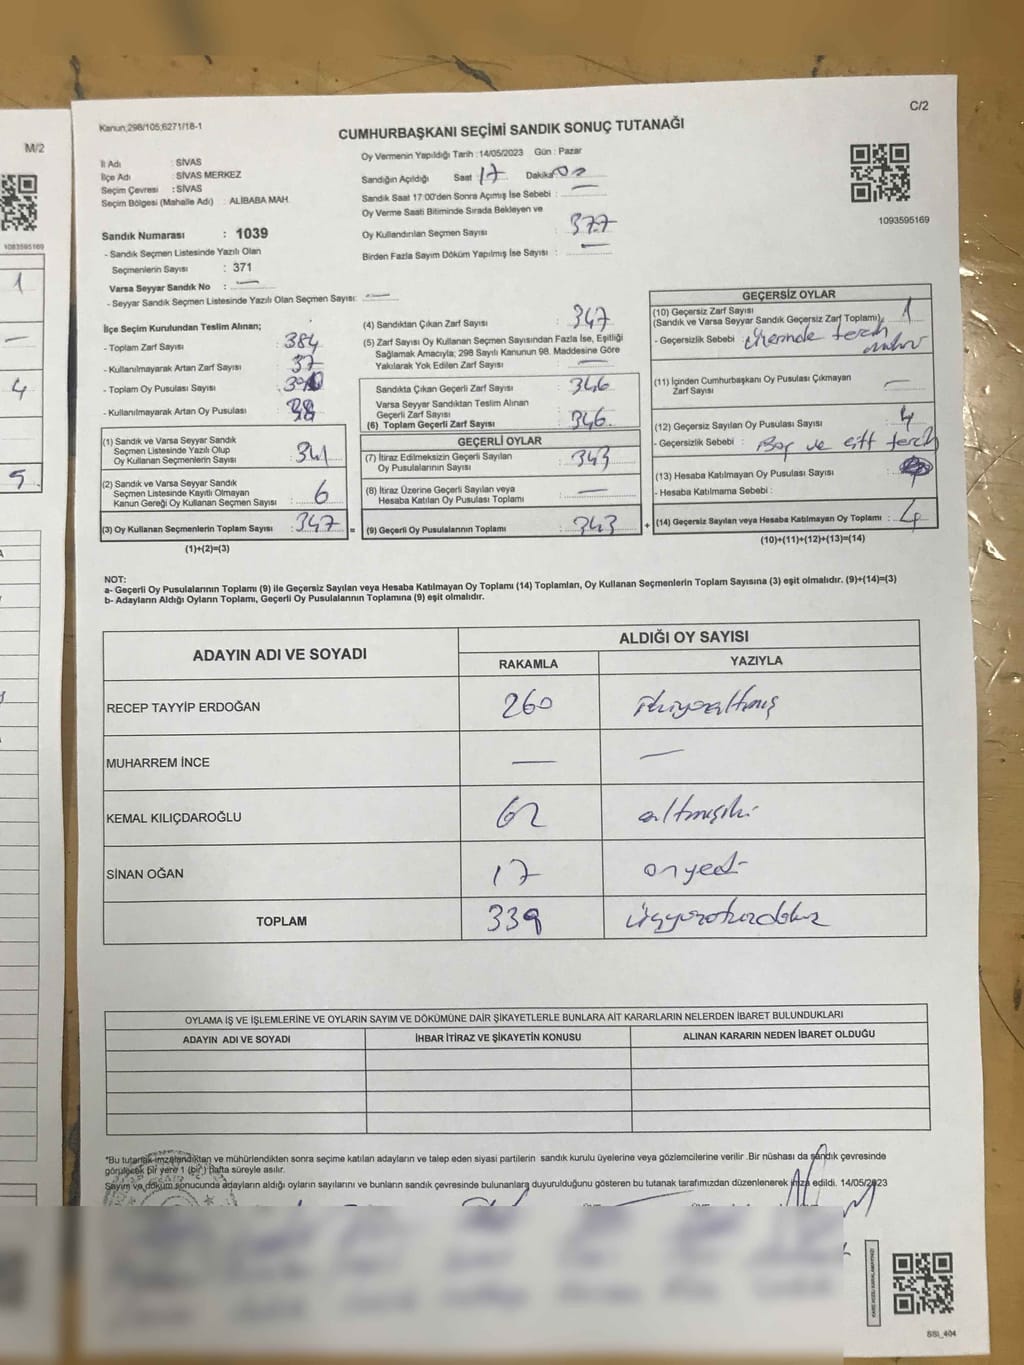 M/2
1083595169
1
4
5
C/2
Kanun;298/105;6271/18-1
CUMHURBAŞKANI SEÇİMİ SANDIK SONUÇ TUTANAĞI
1093595169
İl Adı : SİVAS
İlçe Adı : SİVAS MERKEZ
Seçim Çevresi : SİVAS
Seçim Bölgesi (Mahalle Adı) : ALİBABA MAH.
Sandık Numarası : 1039
- Sandık Seçmen Listesinde Yazılı Olan
Seçmenlerin Sayısı : 371
Varsa Seyyar Sandık No : —
- Seyyar Sandık Seçmen Listesinde Yazılı Olan Seçmen Sayısı: —
Oy Vermenin Yapıldığı Tarih :14/05/2023 Gün : Pazar
Sandığın Açıldığı Saat 17 Dakika 00
Sandık Saat 17:00'den Sonra Açımış İse Sebebi : —
Oy Verme Saati Bitiminde Sırada Bekleyen ve
Oy Kullandırılan Seçmen Sayısı : 377
Birden Fazla Sayım Döküm Yapılmış İse Sayısı : —
İlçe Seçim Kurulundan Teslim Alınan;
- Toplam Zarf Sayısı : 384
- Kullanılmayarak Artan Zarf Sayısı : 37
- Toplam Oy Pusulası Sayısı :
- Kullanılmayarak Artan Oy Pusulası : 38
(1) Sandık ve Varsa Seyyar Sandık
Seçmen Listesinde Yazılı Olup
Oy Kullanan Seçmenlerin Sayısı : 341
(2) Sandık ve Varsa Seyyar Sandık
Seçmen Listesinde Kayıtlı Olmayan
Kanun Gereği Oy Kullanan Seçmen Sayısı : 6
(3) Oy Kullanan Seçmenlerin Toplam Sayısı : 347 =
(1)+(2)=(3)
(4) Sandıktan Çıkan Zarf Sayısı : 347
(5) Zarf Sayısı Oy Kullanan Seçmen Sayısından Fazla İse, Eşitliği
Sağlamak Amacıyla; 298 Sayılı Kanunun 98. Maddesine Göre
Yakılarak Yok Edilen Zarf Sayısı : —
Sandıkta Çıkan Geçerli Zarf Sayısı : 346
Varsa Seyyar Sandıktan Teslim Alınan
Geçerli Zarf Sayısı
(6) Toplam Geçerli Zarf Sayısı : 346
GEÇERLİ OYLAR
(7) İtiraz Edilmeksizin Geçerli Sayılan
Oy Pusulalarının Sayısı : 343
(8) İtiraz Üzerine Geçerli Sayılan veya
Hesaba Katılan Oy Pusulası Toplamı : —
(9) Geçerli Oy Pusulalarının Toplamı : 343 +
GEÇERSİZ OYLAR
(10) Geçersiz Zarf Sayısı
(Sandık ve Varsa Seyyar Sandık Geçersiz Zarf Toplamı) : 1
- Geçersizlik Sebebi : üzerinde tercih
mührü
(11) İçinden Cumhurbaşkanı Oy Pusulası Çıkmayan
Zarf Sayısı : —
(12) Geçersiz Sayılan Oy Pusulası Sayısı : 4
- Geçersizlik Sebebi : Boş ve çift tercih
(13) Hesaba Katılmayan Oy Pusulası Sayısı :
- Hesaba Katılmama Sebebi :
(14) Geçersiz Sayılan veya Hesaba Katılmayan Oy Toplamı : 4
(10)+(11)+(12)+(13)=(14)
NOT:
a- Geçerli Oy Pusulalarının Toplamı (9) ile Geçersiz Sayılan veya Hesaba Katılmayan Oy Toplamı (14) Toplamları, Oy Kullanan Seçmenlerin Toplam Sayısına (3) eşit olmalıdır. (9)+(14)=(3)
b- Adayların Aldığı Oyların Toplamı, Geçerli Oy Pusulalarının Toplamına (9) eşit olmalıdır.
ADAYIN ADI VE SOYADI
ALDIĞI OY SAYISI
RAKAMLA YAZIYLA
RECEP TAYYİP ERDOĞAN 260 ikiyüzaltmış
MUHARREM İNCE — —
KEMAL KILIÇDAROĞLU 62 altmışiki
SİNAN OĞAN 17 onyedi
TOPLAM 339 üçyüzotuzdokuz
OYLAMA İŞ VE İŞLEMLERİNE VE OYLARIN SAYIM VE DÖKÜMÜNE DAİR ŞİKAYETLERLE BUNLARA AİT KARARLARIN NELERDEN İBARET BULUNDUKLARI
ADAYIN ADI VE SOYADI İHBAR İTİRAZ VE ŞİKAYETİN KONUSU ALINAN KARARIN NEDEN İBARET OLDUĞU
*Bu tutanak imzalandıktan ve mühürlendikten sonra seçime katılan adayların ve talep eden siyasi partilerin sandık kurulu üyelerine veya gözlemcilerine verilir .Bir nüshası da sandık çevresinde
görülecek bir yere 1 (bir ) hafta süreyle asılır.
Sayım ve döküm sonucunda adayların aldığı oyların sayılarını ve bunların sandık çevresinde bulunanlara duyurulduğunu gösteren bu tutanak tarafımızdan düzenlenerek imza edildi. 14/05/2023
SSI_404